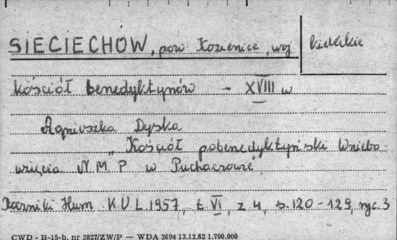 SIECIECHÓW, pow Kozienice, woj kieleckie
kościół benedyktynów - XVIII w
Agnieszka Dyska
„Kościół pobenedyktyński Wniebo
wzięcia N M P w
Roczniki Hum K.U.L 1957, t. VI, z 4, s. 120-129, ryc. 3
CWD - H-15-b, nr 2827/ZW/P — WDA 2694 13.12.62 1.700.000